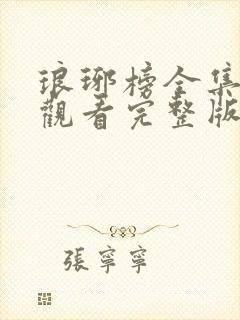 琅琊榜全集
觀看完整版
張寧寧